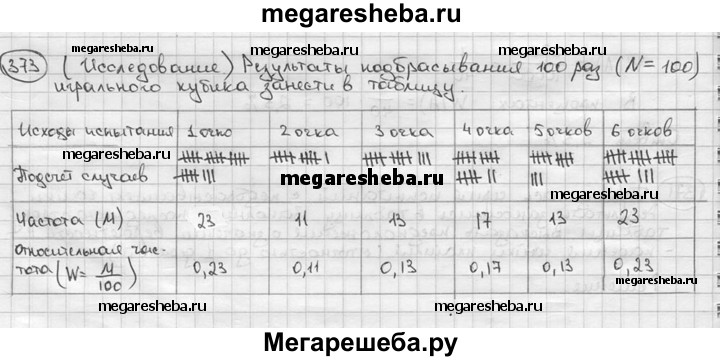 megaresheba.ru
373 (Исследование) Результаты подбрасывания 100 раз (N = 100)
megaresheba.ru megaresheba.ru
игрального кубика занести в таблицу.
Исходы испытания 1 очко 2 очка 3 очка 4 очка 5 очков 6 очков
megaresheba.ru
Подсчёт случаев
megaresheba.ru
megaresheba.ru
Частота (М) 23 11 13 17 13 23
относительная час-
тота (W = М/100) 0,23 0,11 0,13 0,17 0,13 0,23
megaresheba.ru megaresheba.ru megaresheba.ru
Мегарешеба.ру